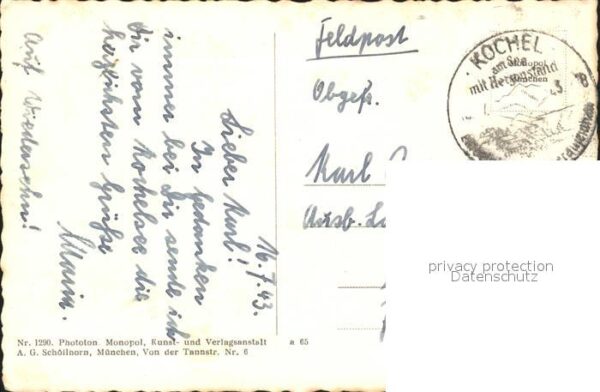 16.7.43.
Lieber Karl!
In Gedanken
immer bei Dir sende ich
Dir vom Kochelsee die
herzlichsten Grüße
Maria.
Auf Wiedersehn!
Feldpost
Obgefr.
Karl
Ausb.
KOCHEL
am See
mit Herzogstand
Monopol
München
43
privacy protection
Datenschutz
Nr. 1290. Phototon. Monopol, Kunst- und Verlagsanstalt
a 65
A. G. Schöllhorn, München, Von der Tannstr. Nr. 6